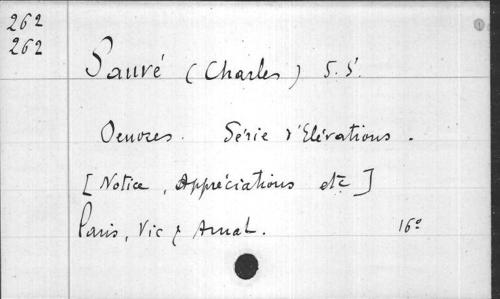 262
262
Sauvé (Charles) S.S.
Oeuvres. Série d'Elévations.
[Notice, Appréciations etc]
Paris, Vic & Amat. 16°